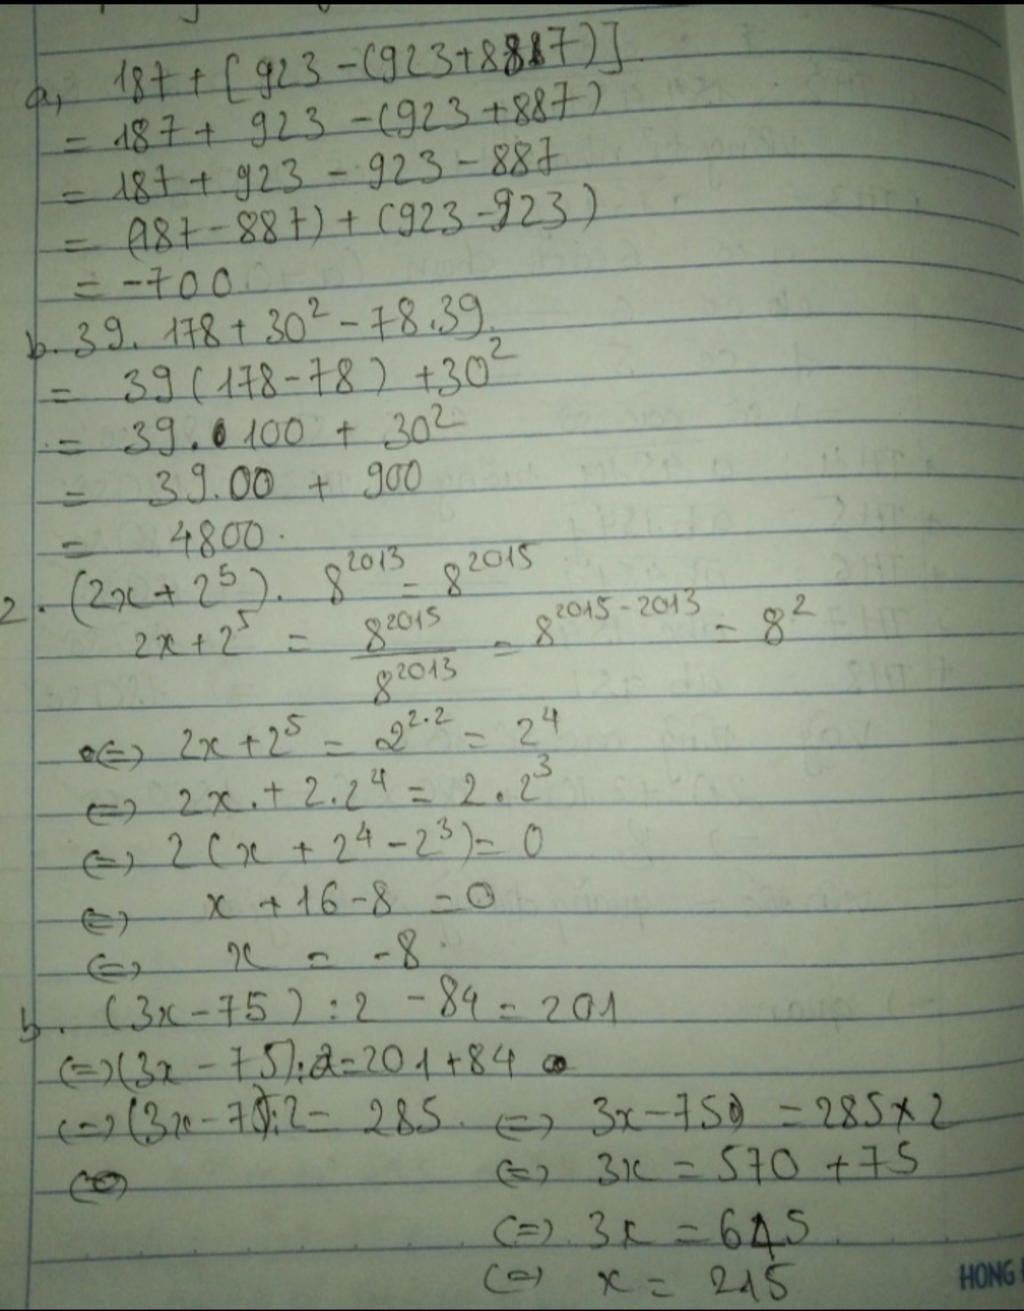 a, 187 + [923 - (923 + 887)]
= 187 + 923 - (923 + 887)
= 187 + 923 - 923 - 887
= (187 - 887) + (923 - 923)
= -700
b. 39. 178 + 30² - 78.39
= 39(178 - 78) + 30²
= 39. 100 + 30²
= 39.00 + 900
= 4800.
2. (2x + 2⁵). 8²⁰¹³ = 8²⁰¹⁵
2x + 2⁵ = 8²⁰¹⁵ / 8²⁰¹³ = 8²⁰¹⁵⁻²⁰¹³ = 8²
(=) 2x + 2⁵ = 2²·² = 2⁴
(=) 2x. + 2.2⁴ = 2.2³
(=) 2(x + 2⁴ - 2³) = 0
(=) x + 16 - 8 = 0
(=) x = -8.
b. (3x - 75) : 2 - 84 = 201
(=) (3x - 75) : 2 = 201 + 84
(=) (3x - 75) : 2 = 285. (=) 3x - 75 = 285 x 2
(=) 3x = 570 + 75
(=) 3x = 645
(=) x = 215
HONG